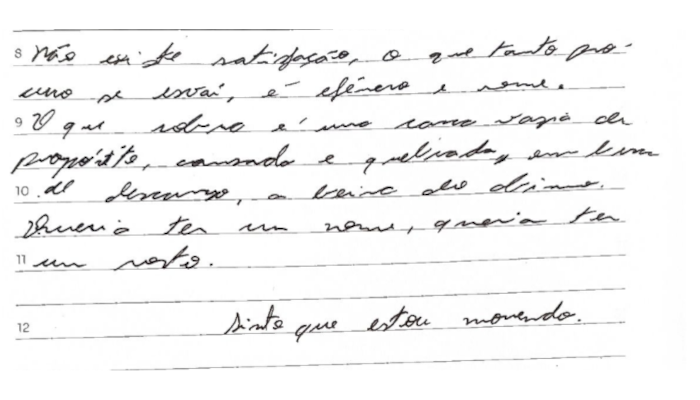 8 Não existe satisfação, o que tanto pro-
curo se esvai, é efêmero e some.
9 O que sobra é uma casca vazia de
propósito, cansada e quebrada, em
10 de descanso, a beira do
Queria ter um nome, queria ter
11 um rosto.
12 Sinto que estou morrendo.